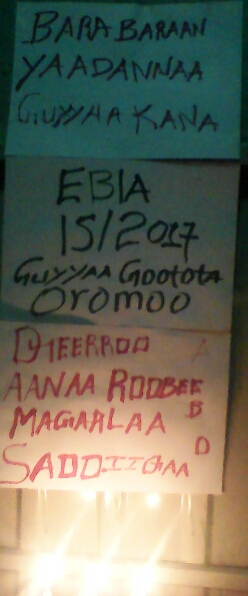 BARA BARAAN
YAADANNAA
GUYYAA KANA
EBLA
15/2017
GUYYAA GOOTOTA
OROMOO
DHEERROO A
AANAA ROOBEE
MAGAALAA B
SADDIIQAA D